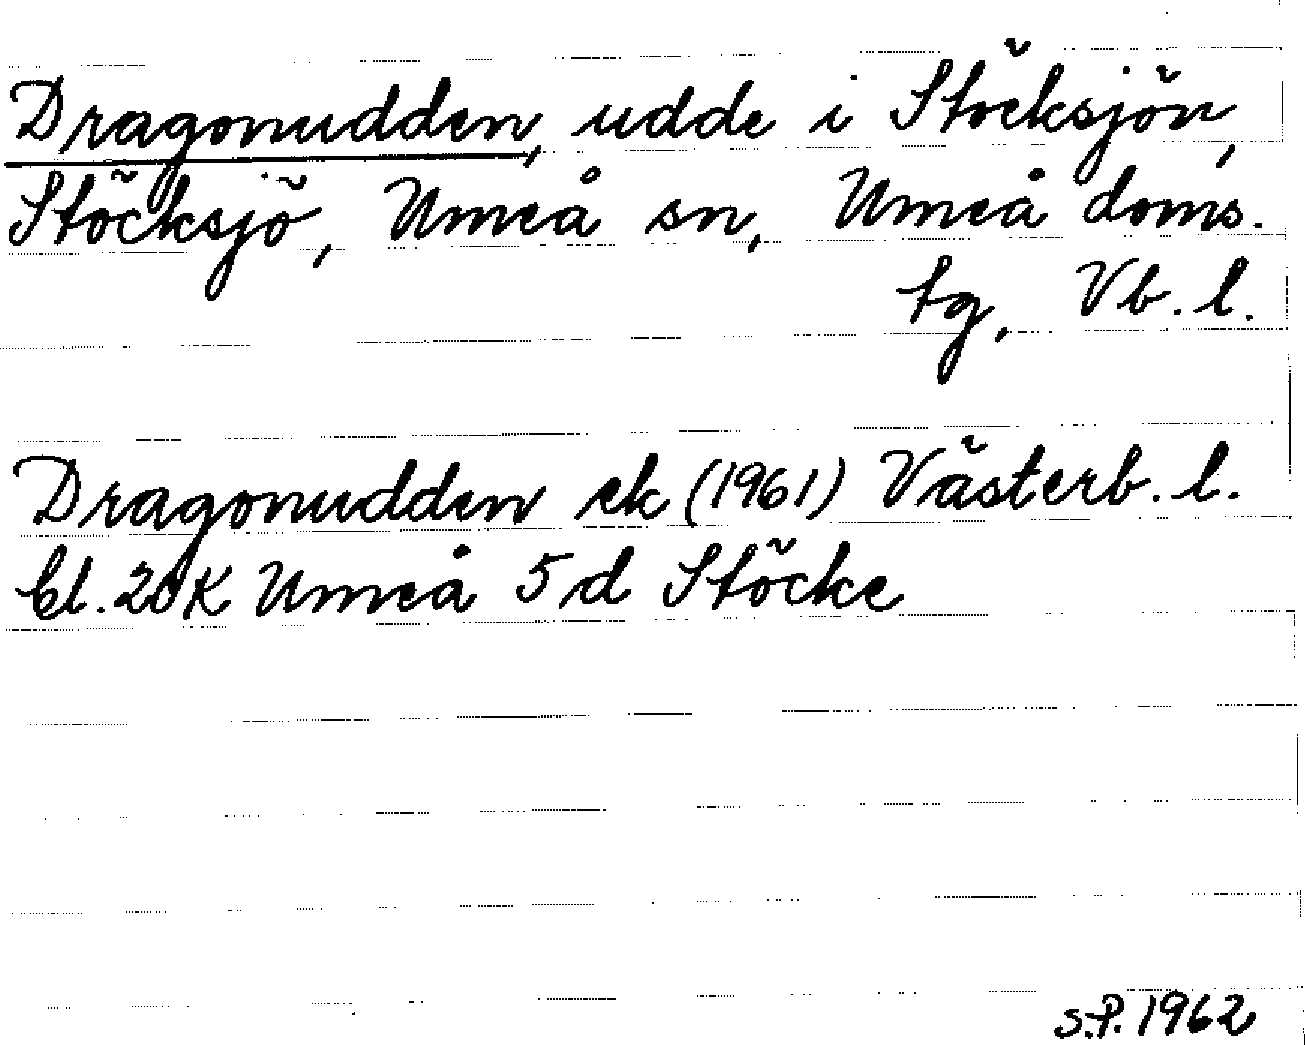 Dragonudden, udde i Stöcksjön,
Stöcksjö, Umeå sn, Umeå doms.
tg, Vb. l.
Dragonudden ek (1961) Västerb. l.
bl. 20K Umeå 5d Stöcke
S.P. 1962